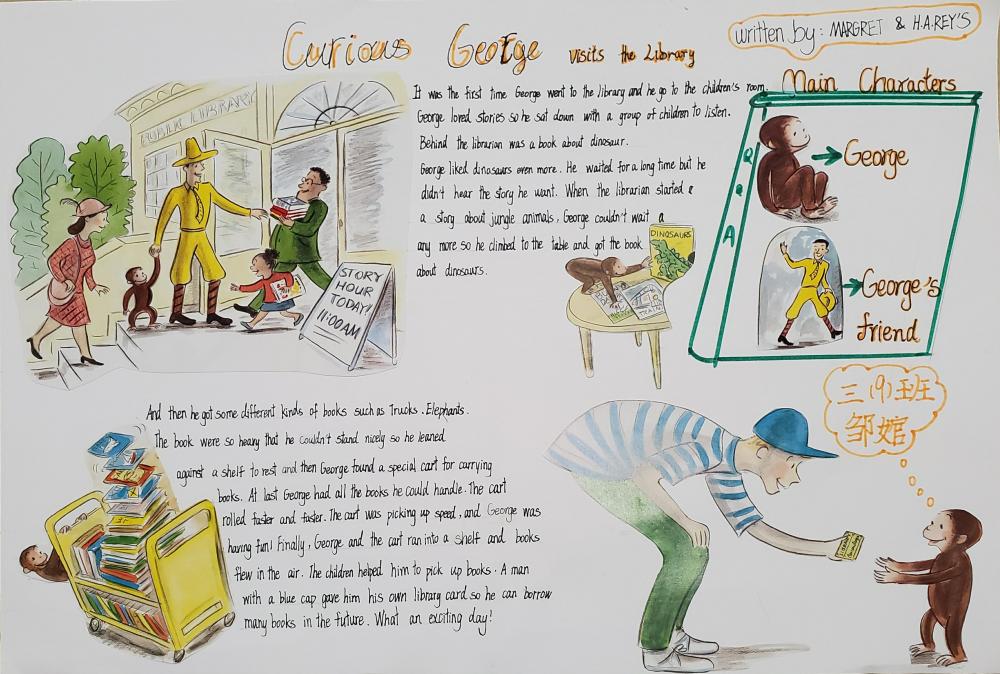 Curious George visits the Library
written by: MARGRET & H.A.REY'S
PUBLIC LIBRARY
STORY
HOUR
TODAY!
11:00 AM
It was the first time George went to the library and he go to the children's room.
George loved stories so he sat down with a group of children to listen.
Behind the librarian was a book about dinosaur.
George liked dinosaurs even more. He waited for a long time but he
didn't hear the story he want. When the librarian started
a story about jungle animals, George couldn't wait a
any more so he climbed to the table and got the book
about dinosaurs.
DINOSAURS
TRAINS
Main Characters
George
George's
friend
And then he got some different kinds of books such as Trucks. Elephants.
The book were so heavy that he couldn't stand nicely so he leaned
against a shelf to rest and then George found a special cart for carrying
books. At last George had all the books he could handle. The cart
rolled faster and faster. The cart was picking up speed, and George was
having fun! Finally, George and the cart ran into a shelf and books
flew in the air. The children helped him to pick up books. A man
with a blue cap gave him his own library card so he can borrow
many books in the future. What an exciting day!
三(9)班
邹婠